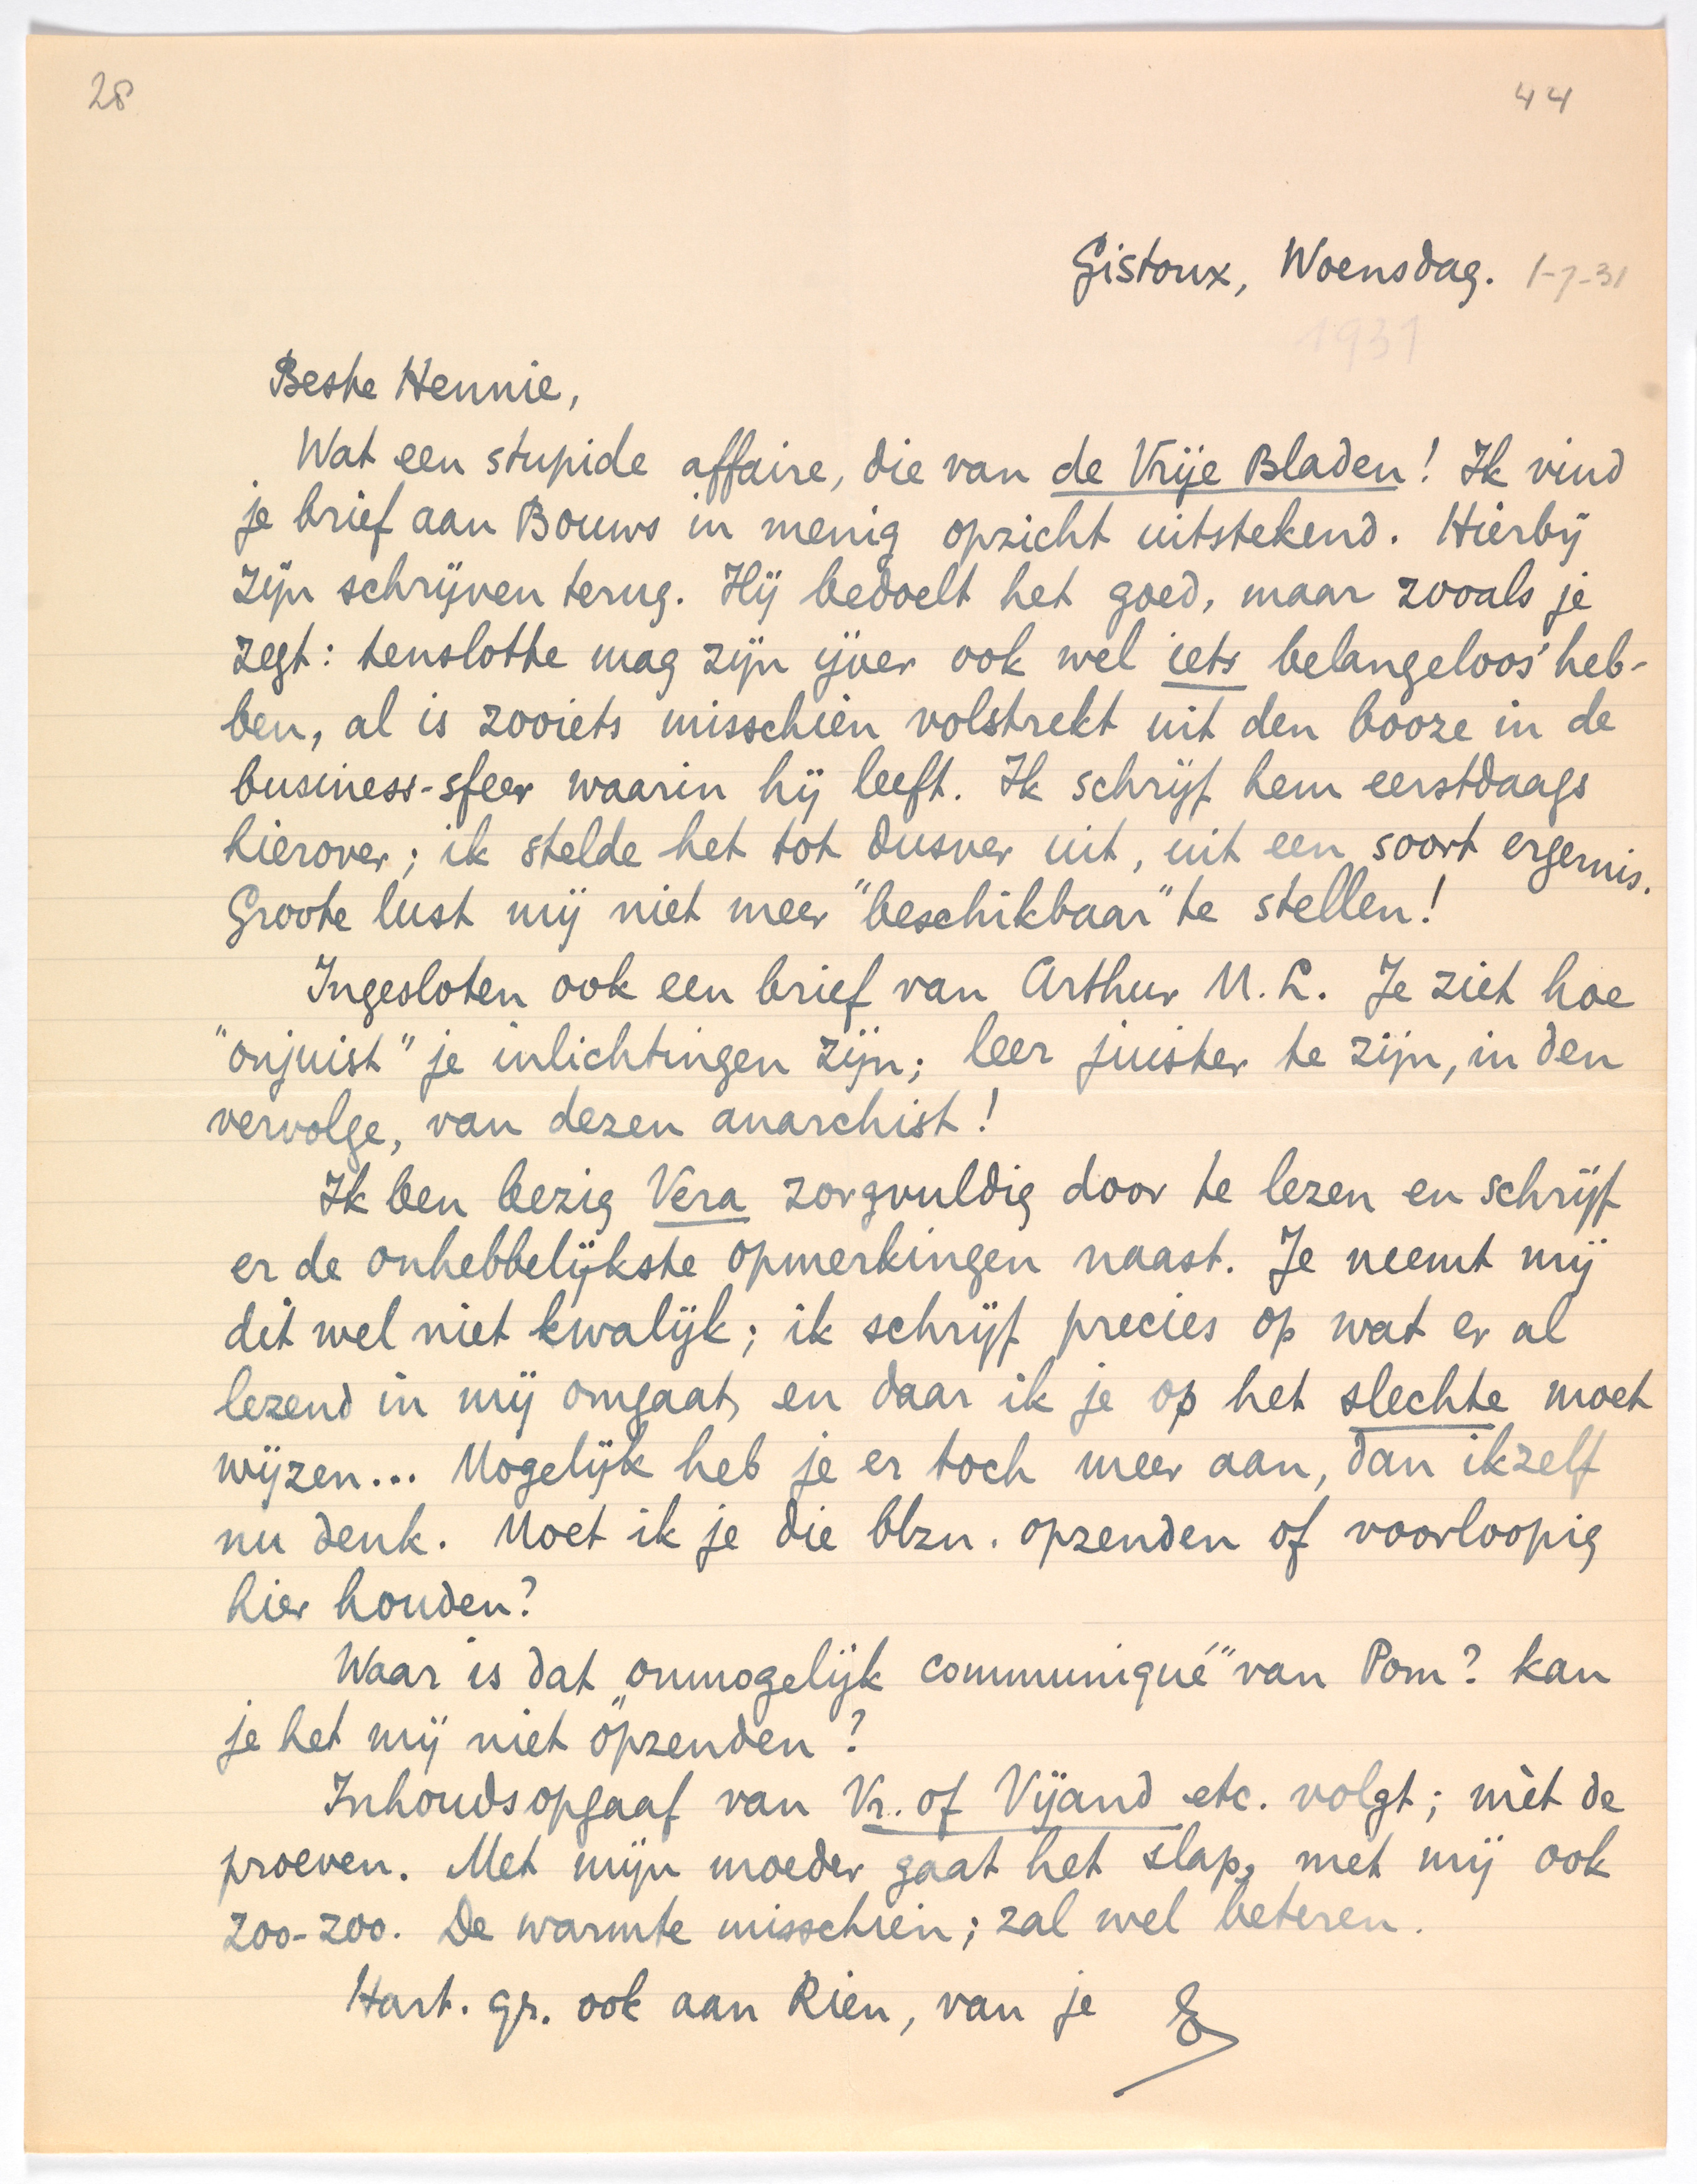 28
44
Gistoux, Woensdag. 1-7-31
1931
Beste Hennie,
Wat een stupide affaire, die van de Vrije Bladen! Ik vind
je brief aan Bouws in menig opzicht uitstekend. Hierbij
zijn schrijven terug. Hij bedoelt het goed, maar zooals je
zegt: tenslotte mag zijn ijver ook wel iets belangeloos' heb-
ben, al is zooiets misschien volstrekt uit den booze in de
business-sfeer waarin hij leeft. Ik schrijf hem eerstdaags
hierover; ik stelde het tot dusver uit, uit een soort ergernis.
Groote lust mij niet meer "beschikbaar" te stellen!
Ingesloten ook een brief van Arthur M. L. Je ziet hoe
"onjuist" je inlichtingen zijn; leer juister te zijn, in den
vervolge, van dezen anarchist!
Ik ben bezig Vera zorgvuldig door te lezen en schrijf
er de onhebbelijkste opmerkingen naast. Je neemt mij
dit wel niet kwalijk; ik schrijf precies op wat er al
lezend in mij omgaat, en daar ik je op het slechte moet
wijzen... Mogelijk heb je er toch meer aan, dan ikzelf
nu denk. Moet ik je die blzn. opzenden of voorloopig
hier houden?
Waar is dat „onmogelijk communiqué" van Pom? kan
je het mij niet opzenden?
Inhoudsopgaaf van Vr. of Vijand etc. volgt; mèt de
proeven. Met mijn moeder gaat het slap, met mij ook
zoo-zoo. De warmte misschien; zal wel beteren.
Hart. gr. ook aan Rien, van je E